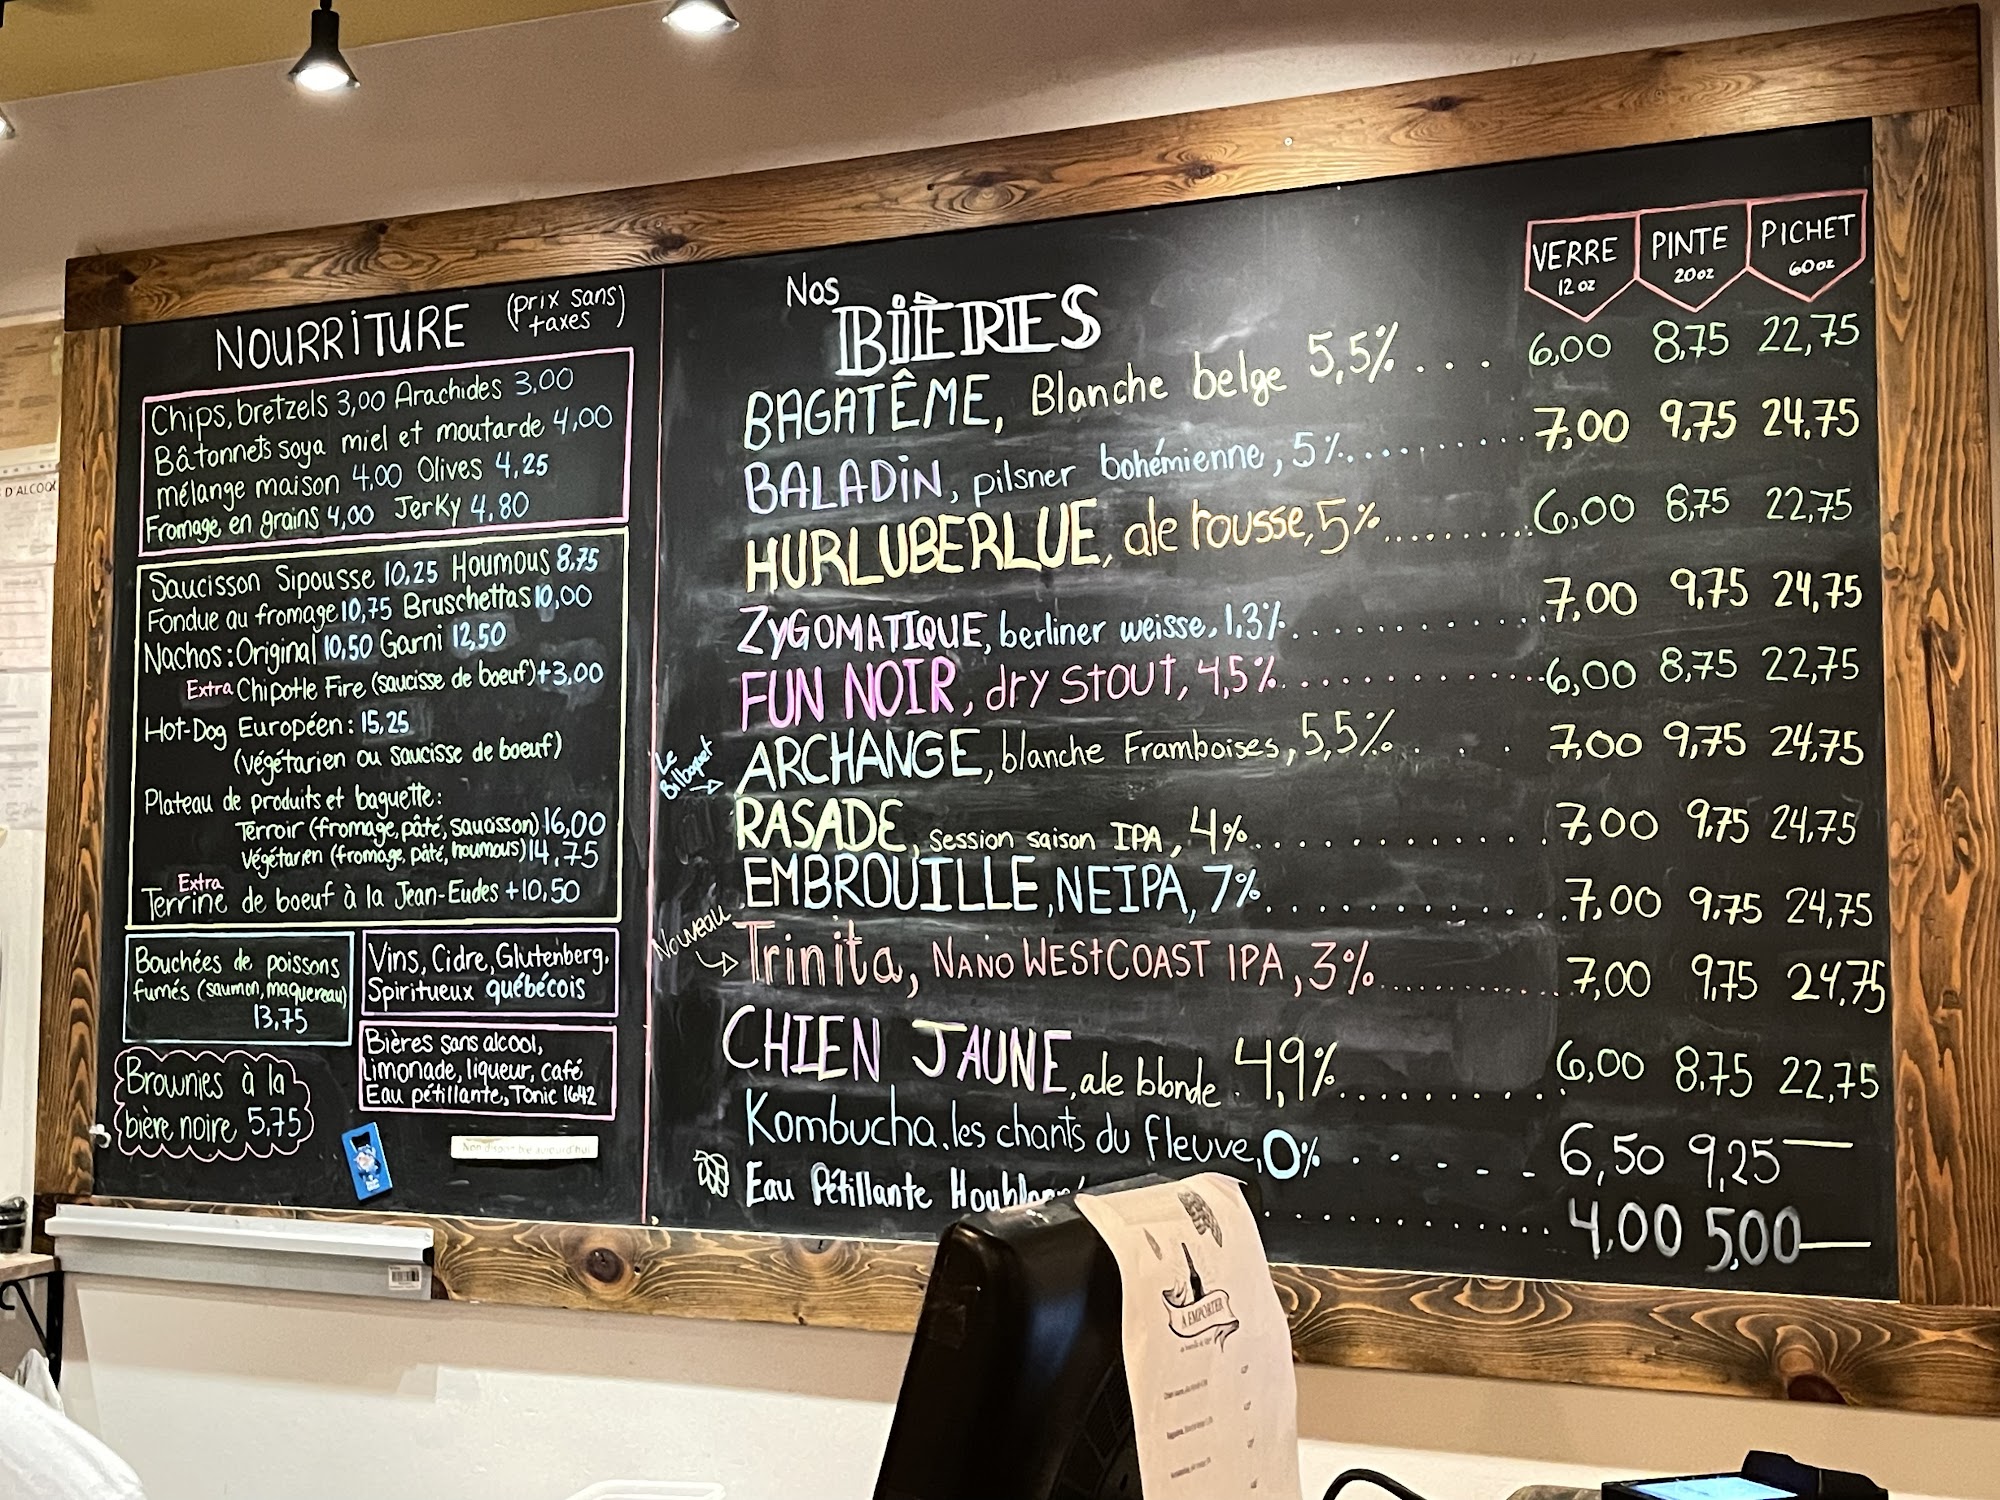 D'ALCOOL
NOURRITURE (prix sans taxes)
Chips, bretzels 3,00 Arachides 3,00
Bâtonnets soya miel et moutarde 4,00
mélange maison 4,00 Olives 4,25
Fromage en grains 4,00 Jerky 4,80
Saucisson Sipousse 10,25 Houmous 8,75
Fondue au fromage 10,75 Bruschettas 10,00
Nachos: Original 10,50 Garni 12,50
Extra Chipotle Fire (saucisse de boeuf) +3,00
Hot-Dog Européen: 15,25
(végétarien ou saucisse de boeuf)
Plateau de produits et baguette:
Terroir (fromage, pâté, saucisson) 16,00
Végétarien (fromage, pâté, houmous) 14,75
Extra
Terrine de boeuf à la Jean-Eudes +10,50
Bouchées de poissons
fumés (saumon, maquereau)
13,75
Vins, Cidre, Glutenberg,
Spiritueux québécois
Bières sans alcool,
Limonade, liqueur, café
Eau pétillante, Tonic 1642
Brownies à la
bière noire 5,75
Non disponible aujourd'hui
Nos
BIÈRES
VERRE 12 oz PINTE 20 oz PICHET 60 oz
BAGATÊME, Blanche belge 5,5% ... 6,00 8,75 22,75
BALADIN, pilsner bohémienne, 5% ........ 7,00 9,75 24,75
HURLUBERLUE, ale rousse, 5% .......... 6,00 8,75 22,75
ZYGOMATIQUE, berliner weisse, 1,3% ............ 7,00 9,75 24,75
FUN NOIR, dry stout, 4,5% ............ 6,00 8,75 22,75
ARCHANGE, blanche Framboises, 5,5% .... 7,00 9,75 24,75
Le Bilboquet
RASADE, session saison IPA, 4% ............ 7,00 9,75 24,75
EMBROUILLE, NEIPA, 7% ............ 7,00 9,75 24,75
Nouveau
Trinita, NANO WESTCOAST IPA, 3% ............ 7,00 9,75 24,75
CHIEN JAUNE, ale blonde 4,9% ............ 6,00 8,75 22,75
Kombucha, les chants du fleuve, 0% ...... 6,50 9,25 —
Eau Pétillante ............ 4,00 5,00 —
À EMPORTER